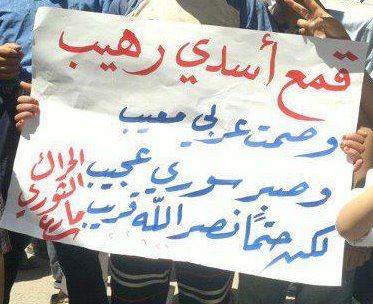 قمع أسدي رهيب
وصمت عربي معيب
وصبر سوري عجيب
لكن حتمًا نصر الله قريب
الحراك
الثوري